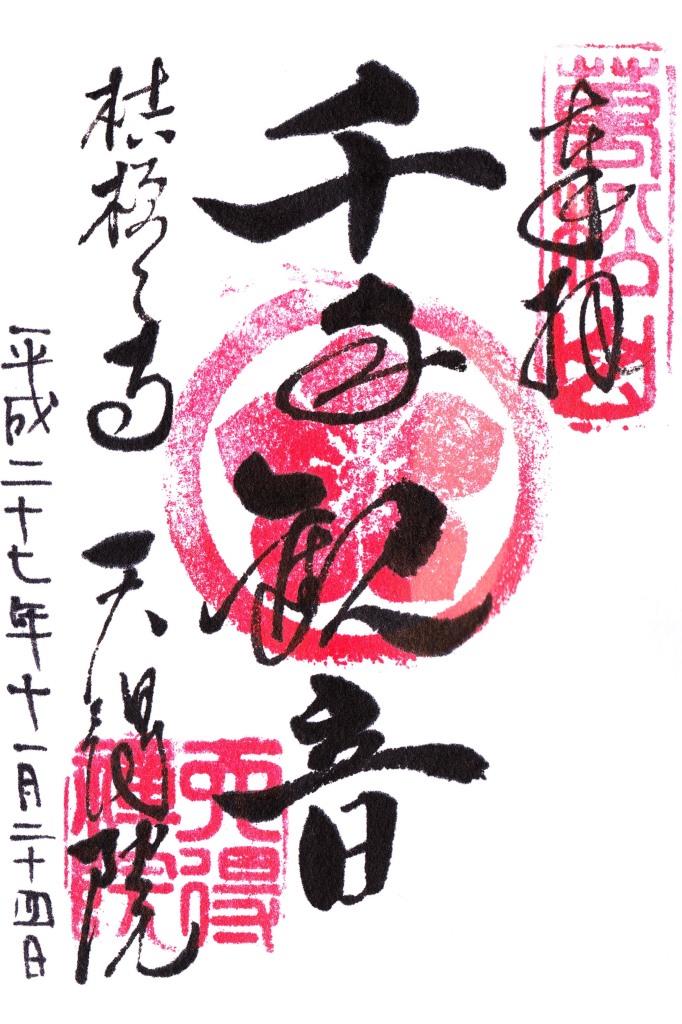 奉拝
萬松山
千手観音
桔梗之寺 天得院
天得禪院
平成二十七年十一月二十四日